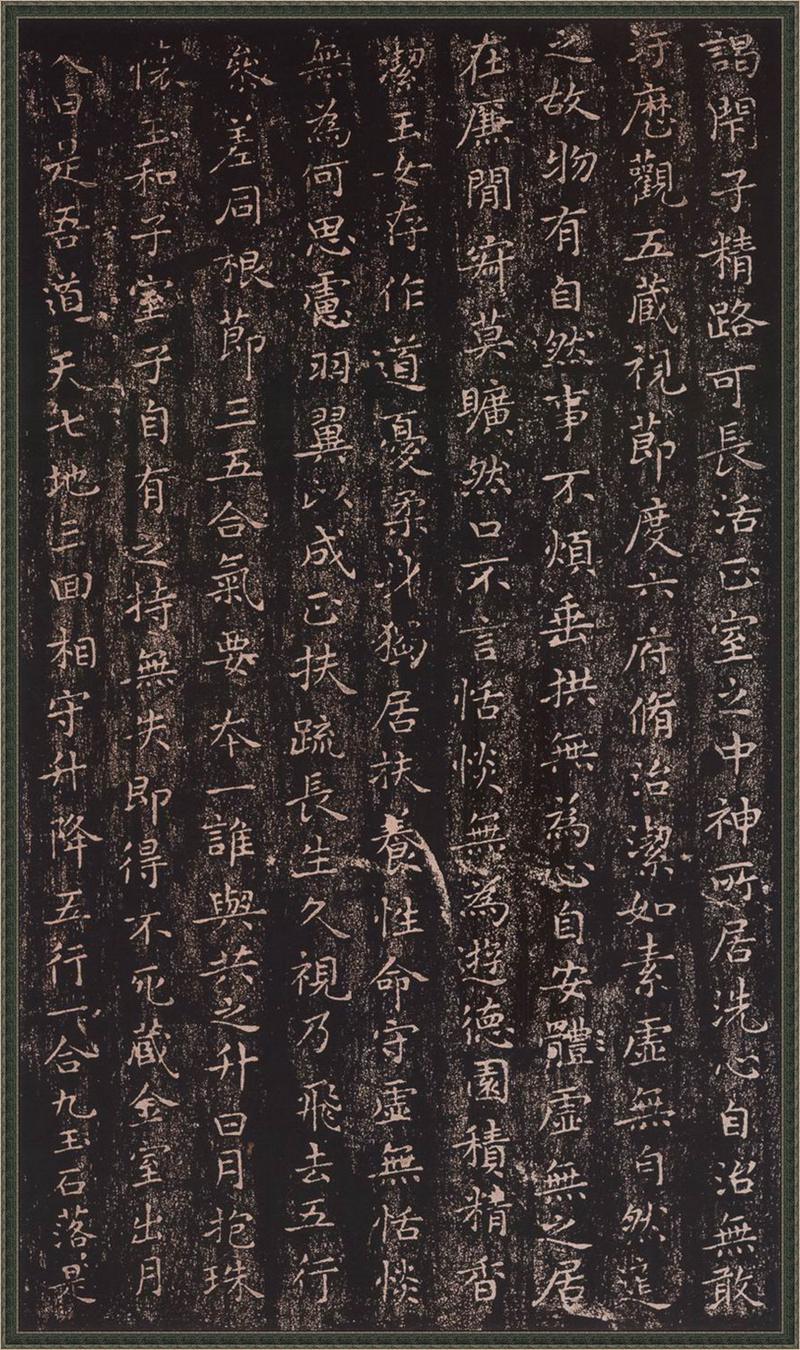 謁閇子精路可長活正室之中神所居洗心自治無敢
汙歷觀五藏視節度六府脩治潔如素虛無自然道
之故物有自然事不煩垂拱無為心自安體虛無之居
在廉閒寂莫曠然口不言恬惔無為遊德園積精香
潔玉女存作道憂柔身獨居扶養性命守虛無恬惔
無為何思慮羽翼以成正扶疏長生久視乃飛去五行
參差同根節三五合氣要本一誰與共之升日月抱珠
懷玉和子室子自有之持無失即得不死藏金室出月
入日是吾道天七地三回相守升降五行一合九玉石落〻是